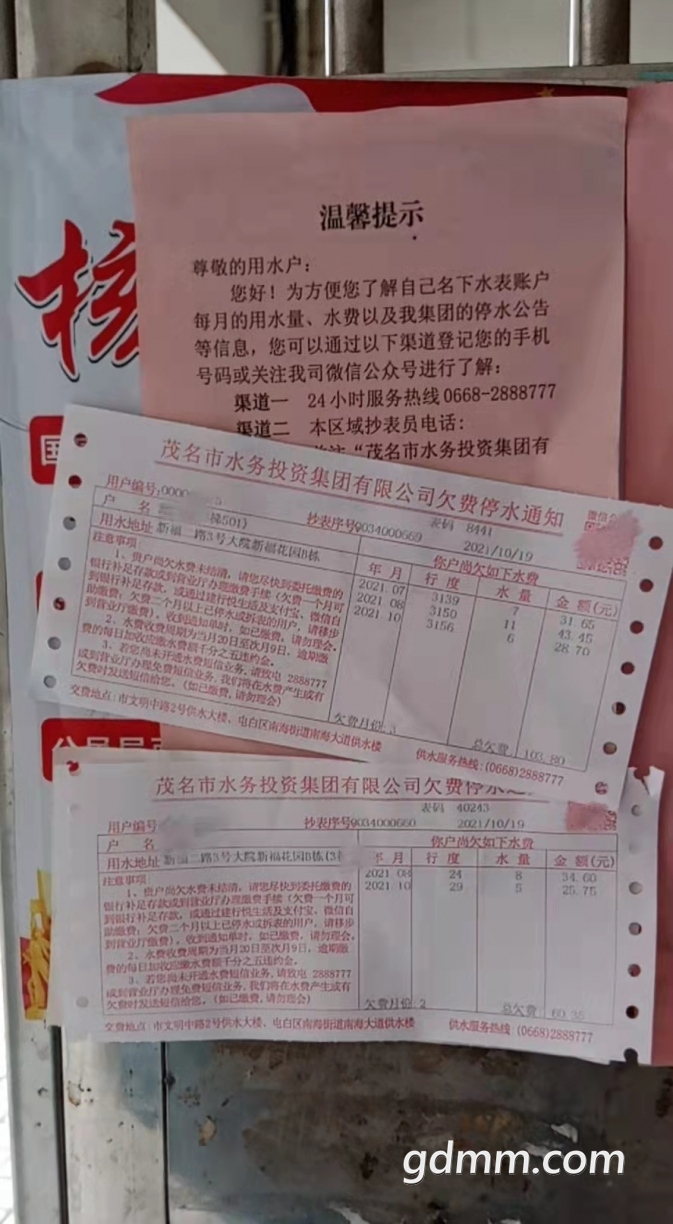 核
温馨提示
尊敬的用水户：
您好！为方便您了解自己名下水表账户
每月的用水量、水费以及我集团的停水公告
等信息，您可以通过以下渠道登记您的手机
号码或关注我司微信公众号进行了解：
渠道一 24小时服务热线0668-2888777
渠道二 本区域抄表员电话：
关注“茂名市水务投资集团有
茂名市水务投资集团有限公司欠费停水通知
用户编号:0000
抄表序号9034000669 表码 8441
户 名 栋501) 2021/10/19
用水地址 新福二路3号大院新福花园B栋
你户尚欠如下水费
注意事项:
年 月 行 度 水 量 金 额(元)
1、贵户尚欠水费未结清，请您尽快到委托缴费的
银行补足存款或到营业厅办理缴费手续（欠费一个月可
到银行补足存款，或通过建行悦生活及支付宝、微信自
助缴费；欠费二个月以上已停水或拆表的用户，请移步
到营业厅缴费)，收到通知单时，如已缴费，请勿理会。
2、水费收费周期为当月20日至次月9日，逾期缴
费的每日加收应缴水费额千分之五违约金。
3、若您尚未开通水费短信业务，请致电 2888777
或到营业厅办理免费短信业务，我们将在水费产生或有
欠费时发送短信给您。(如已缴费,请勿理会)
2021.07 3139 7 31.65
2021.08 3150 11 43.45
2021.10 3156 6 28.70
欠费月份:3 总欠费: 103.80
交费地点:市文明中路2号供水大楼、电白区南海街道南海大道供水楼 供水服务热线:(0668)2888777
茂名市水务投资集团有限公司欠费停水
表码 40243
用户编号 抄表序号9034000660 2021/10/19
户 名
你户尚欠如下水费
用水地址 新福二路3号大院新福花园B栋(3
年 月 行 度 水 量 金 额(元)
注意事项:
1、贵户尚欠水费未结清，请您尽快到委托缴费的
银行补足存款或到营业厅办理缴费手续（欠费一个月可
到银行补足存款，或通过建行悦生活及支付宝、微信自
助缴费；欠费二个月以上已停水或拆表的用户，请移步
到营业厅缴费)，收到通知单时，如已缴费，请勿理会。
2、水费收费周期为当月20日至次月9日，逾期缴
费的每日加收应缴水费额千分之五违约金。
3、若您尚未开通水费短信业务，请致电 2888777
或到营业厅办理免费短信业务，我们将在水费产生或有
欠费时发送短信给您。(如已缴费,请勿理会)
2021.08 24 8 34.60
2021.10 29 5 25.75
欠费月份:2 总欠费: 60.35
交费地点:市文明中路2号供水大楼、电白区南海街道南海大道供水楼 供水服务热线:(0668)2888777
gdmm.com